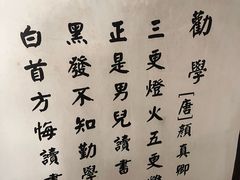 勸學 [唐]顏真卿
三更燈火五更
正是男兒讀書
黑發不知勤學
白首方悔讀書